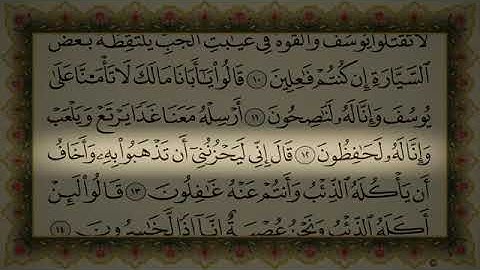 لَا تَقْتُلُوا۟ يُوسُفَ وَأَلْقُوهُ فِى غَيَٰبَتِ ٱلْجُبِّ يَلْتَقِطْهُ بَعْضُ
ٱلسَّيَّارَةِ إِن كُنتُمْ فَٰعِلِينَ ١٠ قَالُوا۟ يَٰٓأَبَانَا مَالَكَ لَا تَأْمَ۫نَّا عَلَىٰ
يُوسُفَ وَإِنَّا لَهُۥ لَنَٰصِحُونَ ١١ أَرْسِلْهُ مَعَنَا غَدًا يَرْتَعْ وَيَلْعَبْ
وَإِنَّا لَهُۥ لَحَٰفِظُونَ ١٢ قَالَ إِنِّى لَيَحْزُنُنِىٓ أَن تَذْهَبُوا۟ بِهِۦ وَأَخَافُ
أَن يَأْكُلَهُ ٱلذِّئْبُ وَأَنتُمْ عَنْهُ غَٰفِلُونَ ١٣ قَالُوا۟ لَئِنْ
أَكَلَهُ ٱلذِّئْبُ وَنَحْنُ عُصْبَةٌ إِنَّآ إِذًا لَّخَٰسِرُونَ ١٤